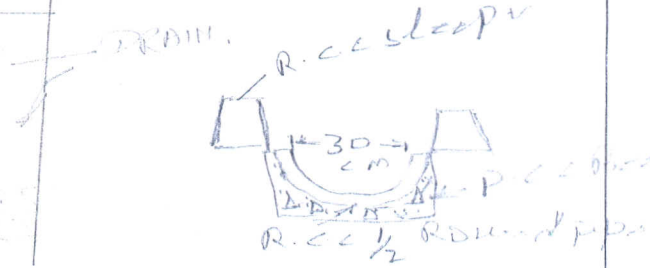 DRAIN.
R.C.C sleeper
30
CM
P.C.C
R.CC 1/2 ROUND pipe